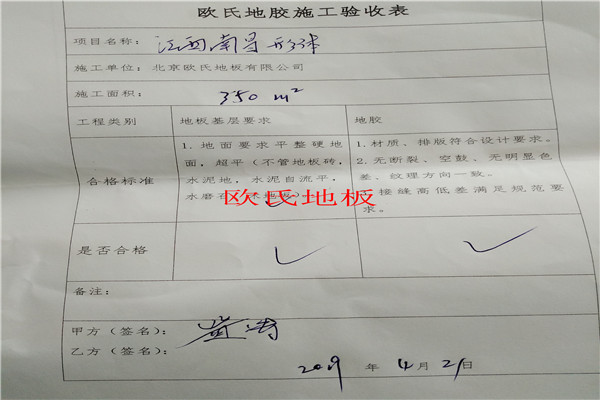 欧氏地胶施工验收表
项目名称： 江西南昌形球
施工单位：北京欧氏地板有限公司
施工面积： 350 m²
工程类别 地板基层要求 地胶
合格标准
1.地面要求平整硬地
面，超平（不管地板砖，
水泥地，水泥自流平，
水磨石，木地板）
1.材质、排版符合设计要求。
2.无断裂、空鼓、无明显色
差、纹理方向一致。
接缝高低差满足规范要
求。
欧氏地板
是否合格 ✓ ✓
备注：
甲方（签名）：
乙方（签名）：
2019 年 4 月 21 日